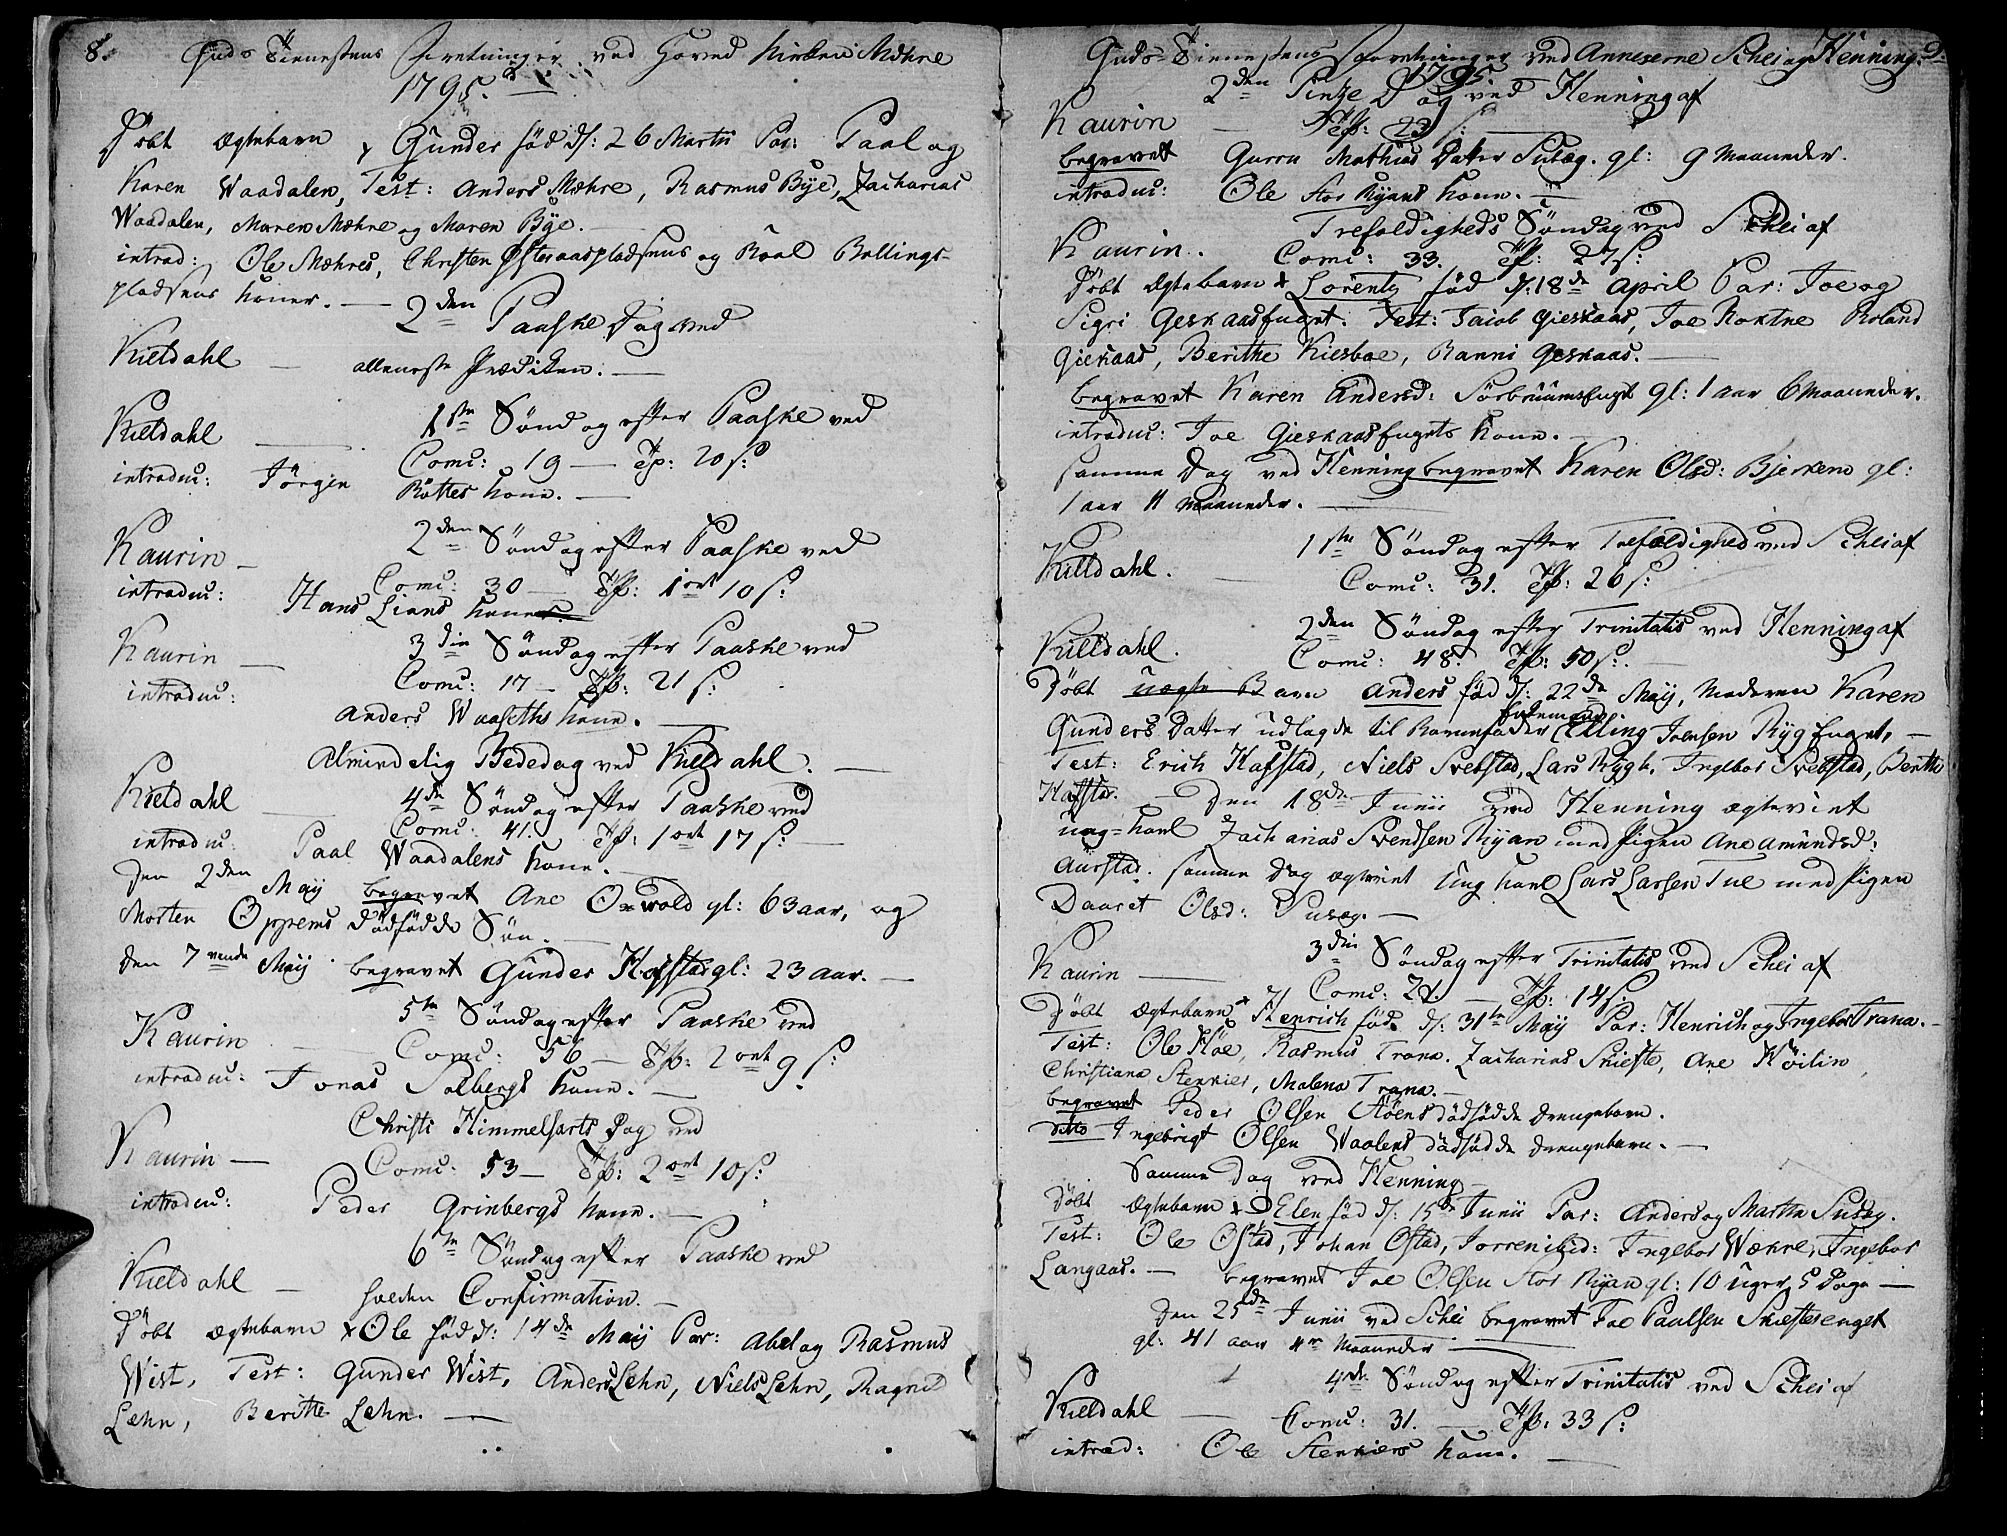 8. Guds Tienestens Forretninger ved Hoved Kirken Mæhre
1795.
Döbt ægtebarn Gunder föd d: 26 Martii Par: Paal og
Karen Waadalen, Test: Anders Mæhre, Rasmus Bye, Zacharias
Waadalen, Maren Mæhre og Maren Bye.
introd: Ole Mæhres, Christen Østeraaspladsens og Roal Bollings-
pladsens koner.
2den Paaske Dag ved
Kieldahl alleneste Prædiken.
1ste Söndag efter Paaske ved
Kieldahl
Comu: 19 Tf: 20 s:
introdu: Jörgen Rottes kone.
2den Söndag efter Paaske ved
Kaurin
Comu: 30 Tf: 1 ort 10 s:
introdu: Hans Lians kone
3die Söndag efter Paaske ved
Kaurin
Comu: 17 Tf: 21 s:
introdu:
Anders Waaseths kone.
Almindelig Bededag ved Kieldahl.
4de Söndag efter Paaske ved
Kieldahl
Comu: 41. Tf: 1 ort 17 s:
introdu: Paal Waadalens kone.
den 2den Maij begravet Ane Oxvold gl: 63 aar, og
Morten Oppems dödfödde Sön.
den 7vende Maij begravet Gunder Hafstad gl: 23 aar.
5te Söndag efter Paaske ved
Kaurin
Comu: 56 Tf: 2 ort 9 s:
introdu: Jonas Solbergs kone.
Christi Himmelfarts Dag ved
Kaurin
Comu: 53 Tf: 2 ort 10 s:
introdu: Peder Grinbergs kone.
6te Söndag efter Paaske ved
Kieldahl holden Confirmation.
Döbt ægtebarn Ole föd d: 14de Maij Par: Abel og Rasmus
Wist, Test: Gunder Wist, Anders Lehn, Niels Lehn, Ragnil
Lehn, Berithe Lehn.
Guds Tienestens Forretninger ved Annexerne Schei og Henning. 9.
1795.
2den Pintze Dag ved Henning af
Kaurin Tf: 23 s:
begravet Guren Mathias Datter Susæg. gl: 9 Maaneder.
introdu: Ole Stor Ryans kone.
Trefoldigheds Söndag ved Schei af
Kaurin. Comu: 33. Tf: 27 s:
Döbt ægtebarn Lorentz föd d: 18de April Par: Joe og
Sigri Geskaasfuget. Test: Jacob Gieskaas, Joe Roktne Roland
Gieskaas, Berithe Kiesboe, Ranni Geskaas.
begravet Karen Andersd: Sörbruumsfugt gl: 1 aar 6 Maaneder.
introdu: Joe Gieskaasfugets kone.
samme Dag ved Henning begravet Karen Olsd: Bjerkem gl:
1 aar 11 Maaneder.
1ste Söndag efter Trefoldighed ved Schei af
Kieldahl.
Comu: 31. Tf: 26 s:
2den Söndag efter Trinitatis ved Henning af
Kieldahl.
Comu: 48. Tf: 50 s:
Döbt uægte Barn Anders föd d: 22de Maij, Moderen Karen
Gunders Datter udlagde til Barnefader Elling Joensen Rygfuget,
Test: Erich Hafstad, Niels Svebstad, Lars Rygh, Ingebor Svebstad, Berithe
Hafstad. Den 18de Junii ved Henning ægteviet
ung-karl Zacharias Svendsen Ryan med Pigen Ane Amundsd:
Aurstad. samme Dag ægteviet Ung karl Lars Larsen Tue med Pigen
Daaret Olsd: Susæg.
3die Söndag efter Trinitatis ved Schei af
Kaurin
Comu: 24. Tf: 14 s:
Döbt ægtebarn Henrich föd d: 31te Maij Par: Henrich og Ingebor Trana.
Test: Ole Höe, Rasmus Trana, Zacharias Skiefte, Ane Höilin
Christiana Stenkier, Malena Trana.
begravet Peder Olsen Höens dödfödde drengebarn.
ditto Ingebrigt Olsen Waalens dödfödde drengebarn.
Samme Dag ved Henning
Döbt ægtebarn Elen föd d: 15de Junii Par: Anders og Martha Susæg.
Test: Ole Ostad, Johan Ostad, Jorren ibid: Ingebor Wæhre, Ingebor
Langaas. begravet Joe Olsen Stor Ryan gl: 10 Uger 5 dage
den 25de Junii ved Schei begravet Joe Paulsen Skiefteenget
gl: 41 aar 4re Maaneder
4de Söndag efter Trinitatis ved Schei af
Kieldahl Comu: 31. Tf: 33 s:
introd: Ole Stenkiers kone.